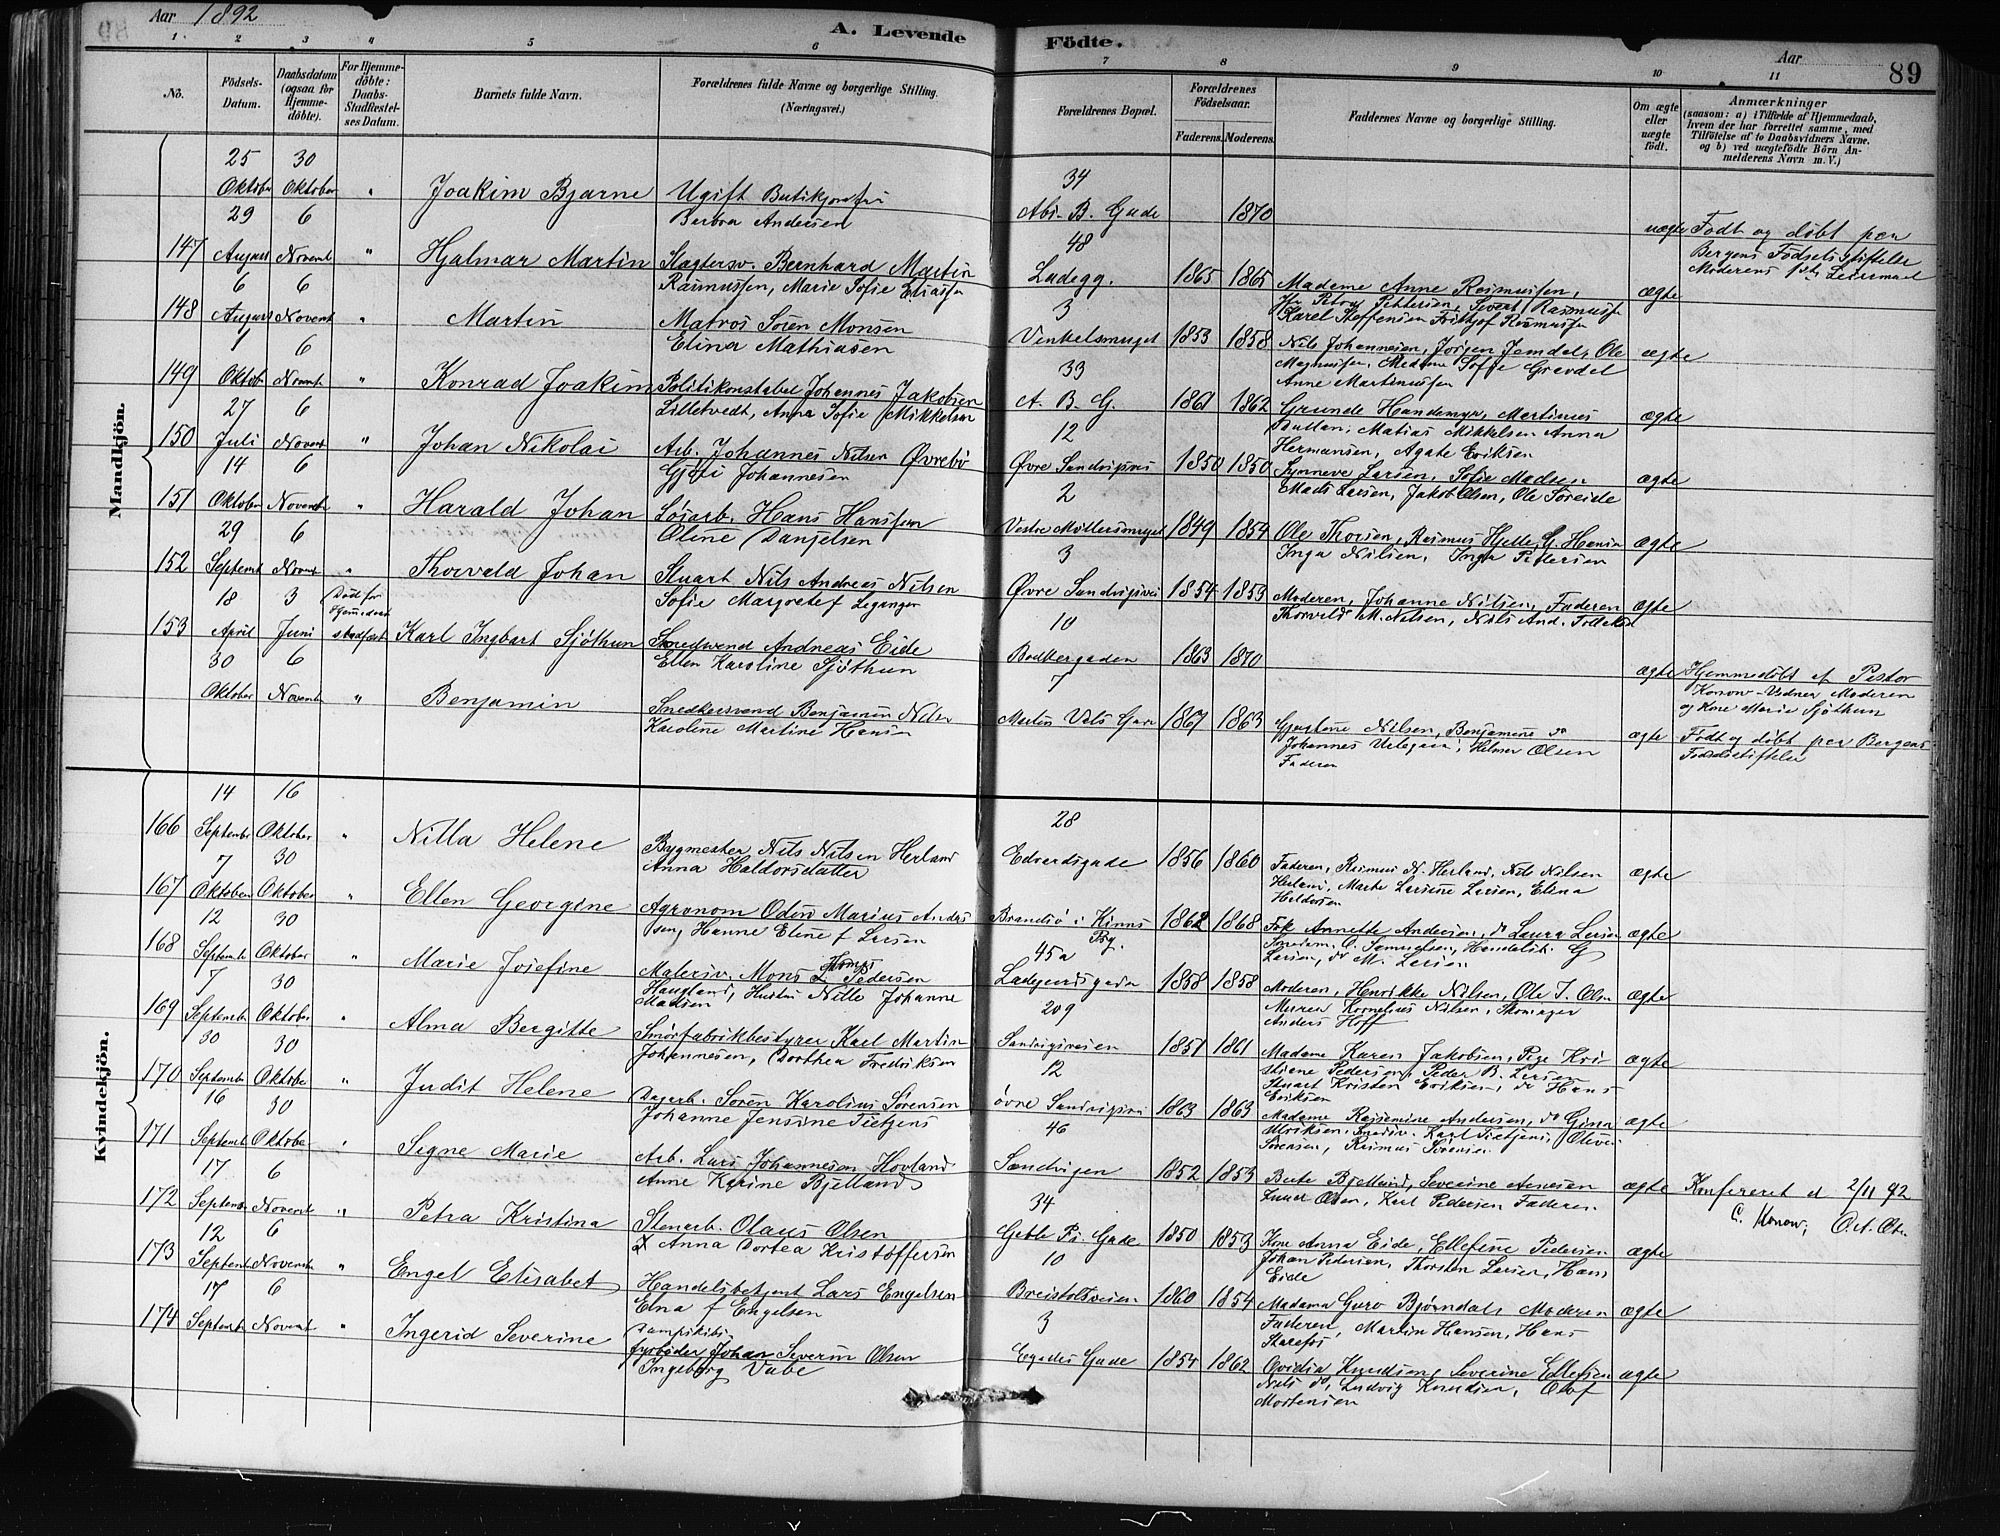 Aar 1892
A. Levende Födte.
Aar
89
1. 2 3 4 5 6 7 8 9 10 11
No.
Födsels-Datum.
Daabsdatum (ogsaa for Hjemme-döbte).
For Hjemme-döbte: Daabs-Stadfæstel-ses Datum.
Barnets fulde Navn.
Forældrenes fulde Navne og borgerlige Stilling.
(Næringsvei.)
Forældrenes Bopæl.
Forældrenes Födselsaar.
Faderens. Moderens.
Faddernes Navne og borgerlige Stilling.
Om ægte eller uægte födt.
Anmærkninger
(saasom: a) i Tilfælde af Hjemmedaab,
hvem der har forrettet samme, med
Tilföielse af to Daabsvidners Navne.
og b) ved uægtefödte Börn An-
melderens Navn m. V.)
Mandkjön.
25 30 34
Oktober Oktober " Joakim Bjarne Ugift
Berbra Andersen
Gade 1870 uægte Født og døbt paa
Bergens Fødselsstiftelse
29 6 48
147 August Novemb " Hjalmar Martin Slagtersv. Bernhard Martin
Rasmussen, Marie Sofie
Ladegg. 1865 1865 Madame Anne Rasmussen,
ægte
6 6 3
148 August Novemb " Martin Matros Søren Monsen
Elina Mathiasen
1853 1858 Nils Johannesen, Ole
ægte
Anne Martinussen
1 6 33
149 Oktob Novemb " Konrad Joakim Politikonstabel Johannes Jakobsen
Lilletvedt, Anna Sofie Mikkelsen
A. B. G. 1861 1862 Martinus
Matias Mikkelsen Anna
Hermansen, Agate Eriksen
ægte
27 6 12
150 Juli Novemb " Johan Nikolai Arb. Johannes Nilsen Øvrebø
Johannesen
Øvre Sandvigsvei 1850 1850 Synneve Larsen, Sofie Madsen
Mads Larsen, Jakob Olsen, Ole
ægte
14 6 2
151 Oktober Novemb " Harald Johan Søsarb. Hans Hanssen
Oline Danjelsen
Vestre 1849 1854 Ole Rasmus Hjelle,
Inga Nilsen, Inga Pettersen
ægte
29 6 3
152 Septemb Novemb " Thorvald Johan Stuart Nils Andreas Nilsen
Sofie Margrete f
Øvre Sandvigsvei 1854 1853 Moderen, Johanne Nilsen, Faderen
Thorvald M. Nilsen, Nils And.
ægte
18 3 10
153 April Juni Karl Ingbart Sjøthun Smedsvend Andreas Eide
Ellen Karoline Sjøthun
Bødkergaden 1863 1870 ægte Hjemmedøbt af Pastor
Konow - Vidner Moderen
og Kone Marie Sjøthun
30 6 7
Oktober Novemb " Benjamin Snedkersvend Benjamin Nilsen
Karoline Martine Hansen
1867 1863 Nilsen, Benjamine do
Johannes Helmer Olsen
Faderen
ægte Født og døbt paa Bergens
Fødselsstiftelse
Kvindekjön.
14 16 28
166 September Oktober " Nilla Helene Bygmester Nils Nilsen Herland
Anna Haldorsdatter
Edvardsgade 1856 1860 Faderen, Rasmus N. Herland, Nils Nilsen
Herland, Marte Larsine Larsen, Elena
Haldorsen
ægte
7 30
167 Oktober Oktober " Ellen Georgine Agronom Odin Marius Ander
sen, Hanne Eline f Larsen
Brandsø i Kinns
Pg.
1862 1868 Frk Annette Andersen, do Laura Larsen
Larsen, do M. Larsen
ægte
12 30 45a
168 Septemb Oktober " Marie Josefine Malersv. Mons Pedersen
Haugland, Hustru Nille Johanne
Madsen
Ladegaardsgaden 1858 1858 Moderen, Henrikke Nilsen, Ole J. Olsen
Murer Kornelius Nilsen, Skomager
Anders Hoff
ægte
7 30 209
169 September Oktober " Alma Bergitte Smørfabrikbestyrer Karl Martin
Johannesen, Dorthea Fredriksen
Sandvigsveien 1851 1861 Madame Karen Jakobsen, Pige Kri
stiane Pedersen, Peder B. Larsen
Stuart Kristen Eriksen, do Hans
Eriksen
ægte
30 30 12
170 Septemb Oktober " Judit Helene Dagarb. Søren Karolius Sørensen
Johanne Jensine Tietjens
øvre Sandvigsvei 1863 1863 Madame Rasmine Andersen, do Gina
Ulriksen, Karl Tietjens,
Sørensen, Rasmus Sørensen
ægte
16 30 46
171 Septemb Oktober " Signe Marie Arb. Lars Johannesen Hovland
Anne Karine Bjelland
Sandvigen 1852 1853 Berte Bjelland, Severine Arnesen
Karl Pedersen Faderen
ægte Konfereret d 2/11 92
C. Konow,
17 6 34
172 Septemb Novemb " Petra Kristina Stenarb. Olaus Olsen
Anna Dortea Kristoffersen
Geble Ps. Gade 1850 1853 Kone Anna Eide, Ellefine Pedersen
Johan Pedersen, Thorsten Larsen, Hans
Eide
ægte
12 6 10
173 Septemb Novemb " Engel Elisabet Handelsbetjent Lars Engelsen
Elna f Engelsen
Breistølsveien 1860 1854 Madame Guro Bjørndal, Moderen
Faderen, Martin Hansen, Hans
ægte
17 6 3
174 Septemb Novemb " Ingerid Severine Dampskibs-
fyrbøder Johan Severin Olsen
Ingeborg Vabø
Gade 1854 1862 Ovidia Knudsen, Severine Ellefsen
Nils do, Ludvig Knudsen, Olaf
Mortensen
ægte